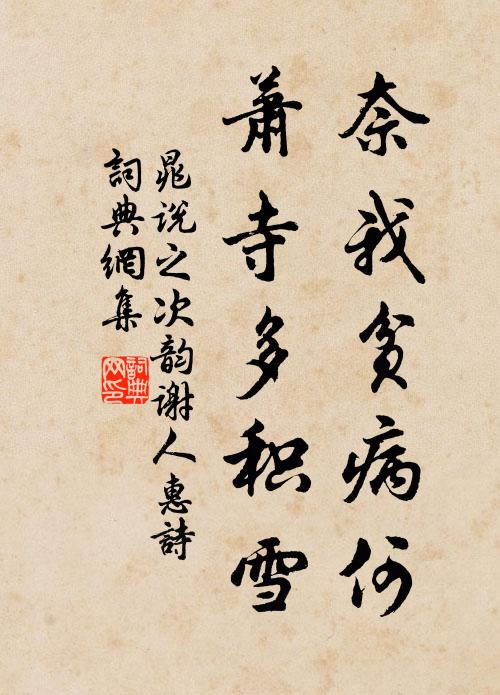 奈我贫病何
萧寺多积雪
晁说之次韵谢人惠詩
詞典網集
詞典网印